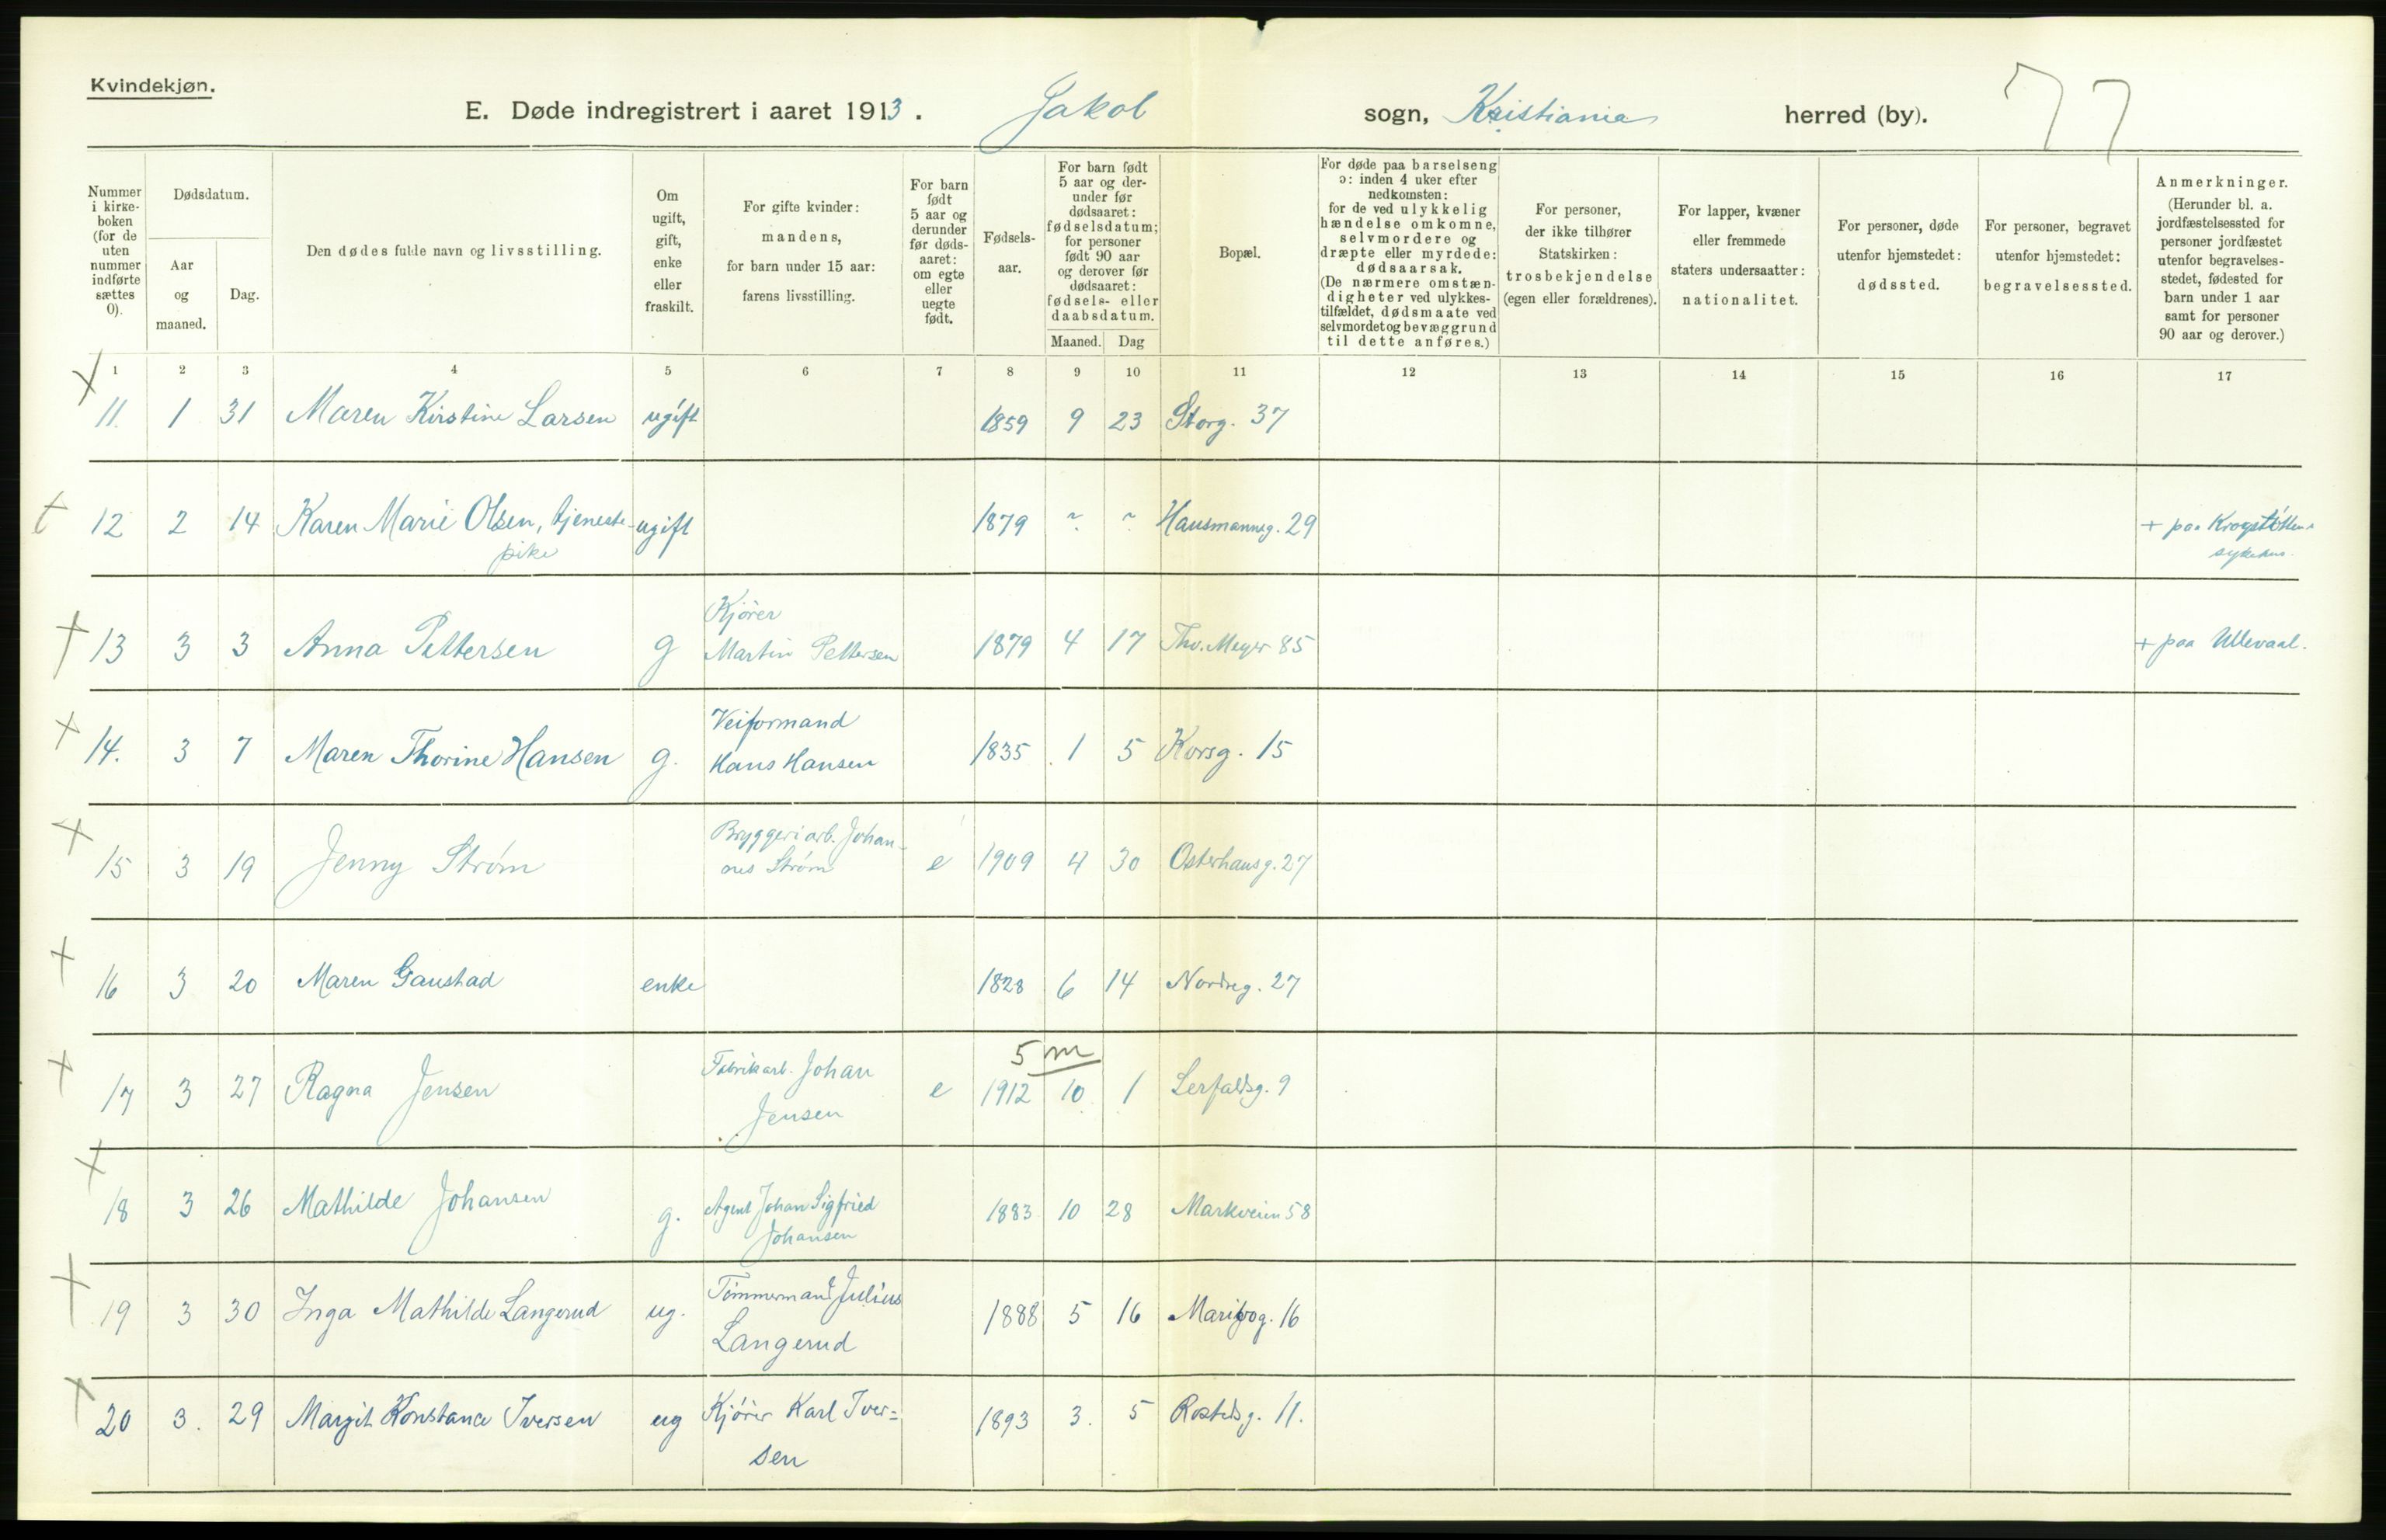 Kvindekjøn.
E. Døde indregistrert i aaret 1913. Jakob sogn, Kristiania herred (by). 77
Nummer i kirkeboken (for de uten nummer indførte sættes 0).
Dødsdatum.
Aar og maaned.
Dag.
Den dødes fulde navn og livsstilling.
Om ugift, gift, enke eller fraskilt.
For gifte kvinder: mandens, for barn under 15 aar: farens livsstilling.
For barn født 5 aar og derunder før dødsaaret: om egte eller uegte født.
Fødselsaar.
For barn født 5 aar og derunder før dødsaaret: fødselsdatum; for personer født 90 aar og derover før dødsaaret: fødsels- eller daabsdatum.
Maaned. Dag
Bopæl.
For døde paa barselseng ɔ: inden 4 uker efter nedkomsten: for de ved ulykkelig hændelse omkomne, selvmordere og dræpte eller myrdede: dødsaarsak. (De nærmere omstændigheter ved ulykkestilfældet, dødsmaate ved selvmordet og bevæggrund til dette anføres.)
For personer, der ikke tilhører Statskirken: trosbekjendelse (egen eller forældrenes).
For lapper, kvæner eller fremmede staters undersaatter: nationalitet.
For personer, døde utenfor hjemstedet: dødssted.
For personer, begravet utenfor hjemstedet: begravelsessted.
Anmerkninger. (Herunder bl. a. jordfæstelsessted for personer jordfæstet utenfor begravelsesstedet, fødested for barn under 1 aar samt for personer 90 aar og derover.)
1 2 3 4 5 6 7 8 9 10 11 12 13 14 15 16 17
11. 1 31 Maren Kirstine Larsen ugift 1859 9 23 Storg. 37
12 2 14 Karen Marie Olsen, tjeneste- ugift 1879 ~ ~ Hausmannsg. 29 + paa
pike sykehus.
Kjører
13 3 3 Anna Pettersen g Martin Pettersen 1879 4 17 Thv. Meyer 85 + paa Ullevaal.
Veiformand
14. 3 7 Maren Thorine Hansen g. Hans Hansen 1835 1 5 Korsg. 15
Bryggeriarb. Johan-
15 3 19 Jenny Strøm nes Strøm e 1909 4 30 Osterhausg. 27
16 3 20 Maren Gaustad enke 1828 6 14 Nordreg. 27
5 m
17 3 27 Ragna Jensen Fabrikarb. Johan e 1912 10 1 Lerfaldsg. 9
Jensen
18 3 26 Mathilde Johansen g. Agent Johan Sigfried 1883 10 28 Markveien 58
Johansen
19 3 30 Inga Mathilde Langerud ug. Tømmermand Julius 1888 5 16 Maribog. 16
Langerud
20 3. 29 Margit Konstance Iversen ug Kjører Karl Iver= 1893 3. 5 Rostedsg. 11.
sen